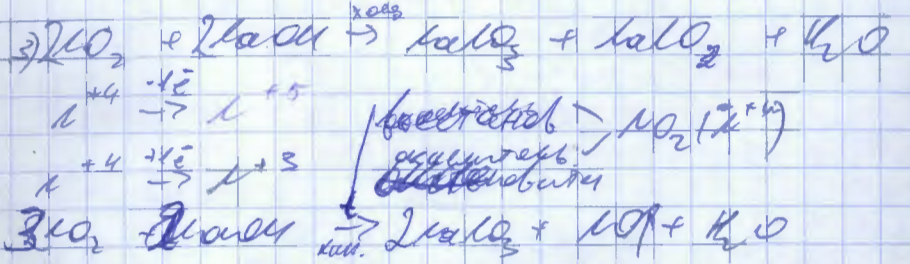 3) 2NO₂ + 2NaOH →(холод) NaNO₃ + NaNO₂ + H₂O
N⁺⁴ -1ē → N⁺⁵ восстанов
NO₂ (N⁺⁴)
N⁺⁴ +1ē → N⁺³ окислитель
3NO₂ + 2NaOH → 2NaNO₃ + NO + H₂O